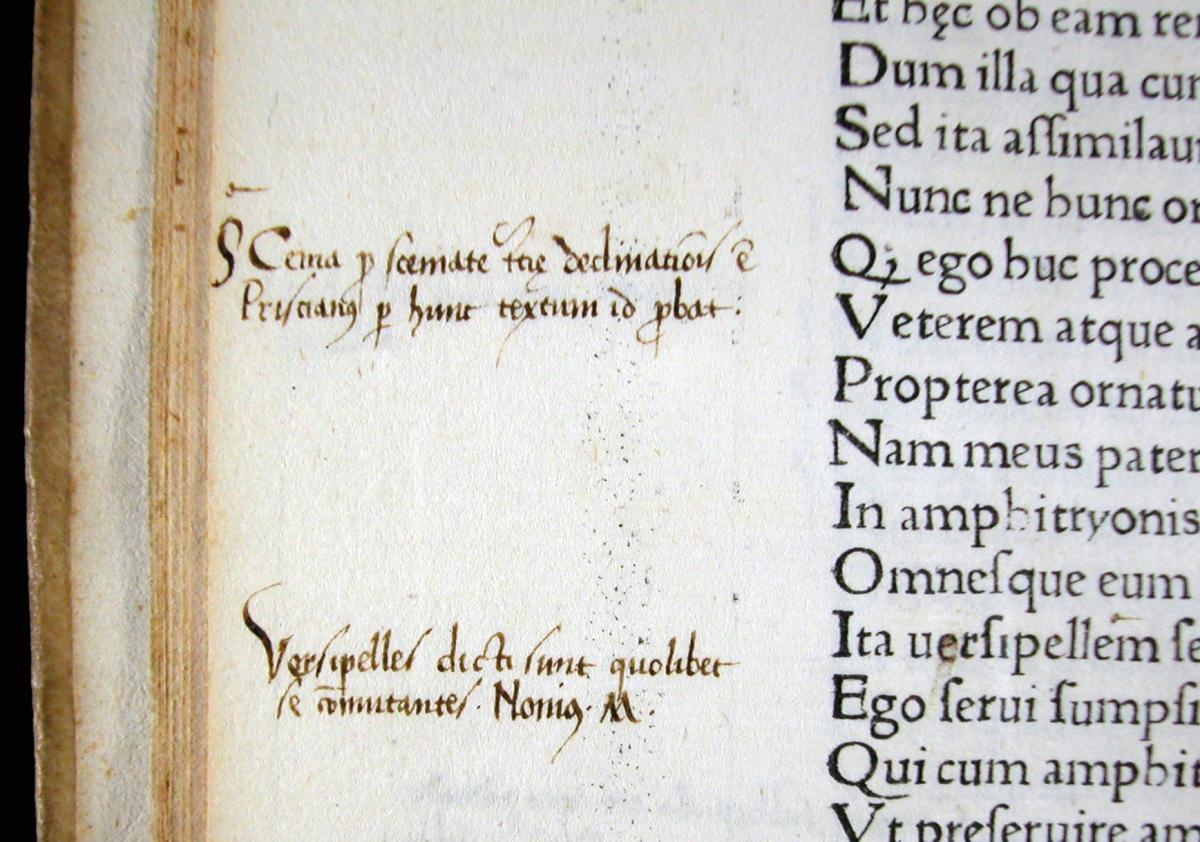 SCema ꝓ scemate ttię declinatiōis ē
Priscianꝰ ꝑ hunc textum id ꝓbat:
Versipelles dicti sunt quolibet
sē cōmutantes. Noniꝰ. M.
Et hęc ob eam re
Dum illa qua cur
Sed ita aſſimilau
Nunc ne hunc or
Qꝫ ego huc proce
Veterem atque a
Propterea ornatu
Nam meus pater
In amphitryonis
Omneſque eum
Ita uerſipellem ſe
Ego ſerui ſumpſi
Qui cum amphit
Vt preſeruire am